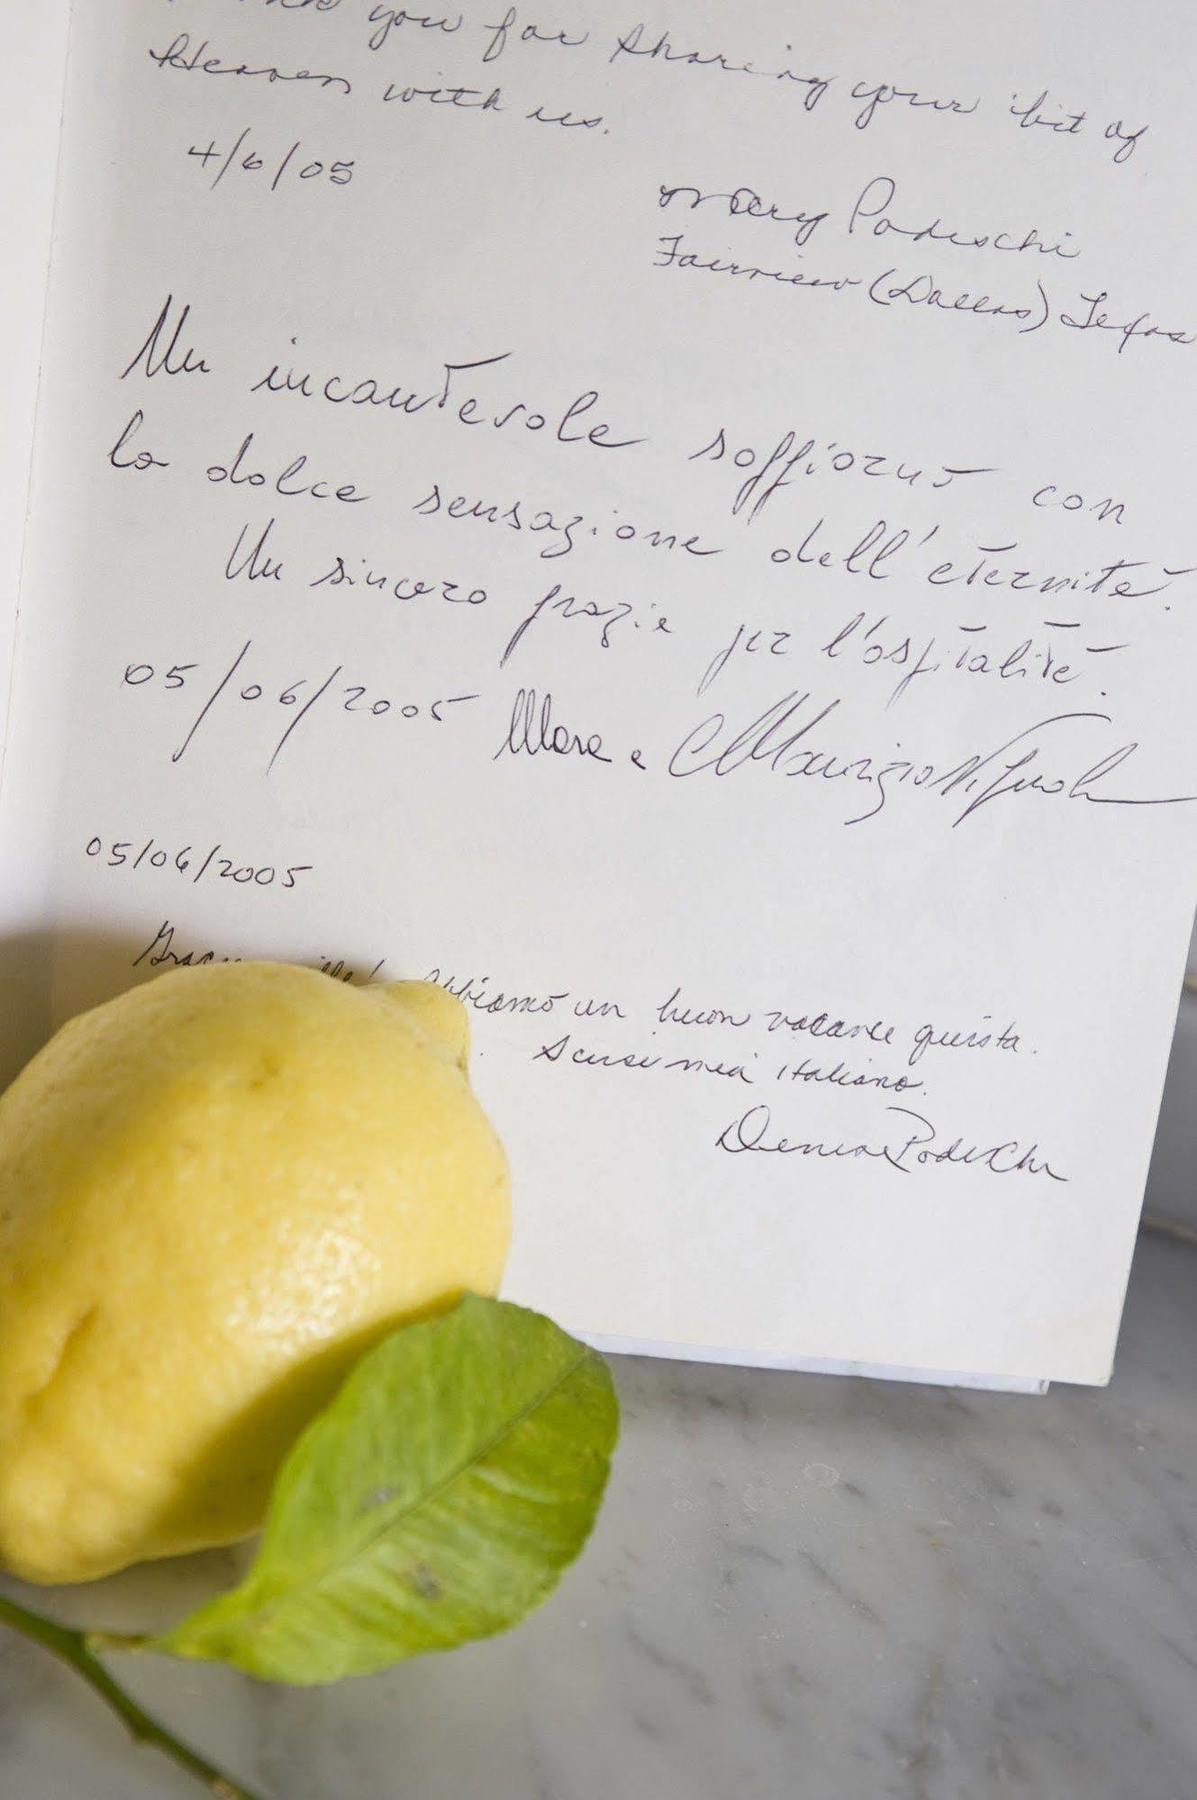 you for sharing your bit of
Heaven with us.
4/6/05
Mary Podeschi
Fairview (Dallas) Texas
Un incantevole soffiorno con
la dolce sensazione dell'eternità.
Un sincero grazie per l'ospitalità.
05/06/2005 Mara e Maurizio
05/06/2005
Abbiamo un buon vacance questa.
Scusi mia italiano.
Denise Podeschi